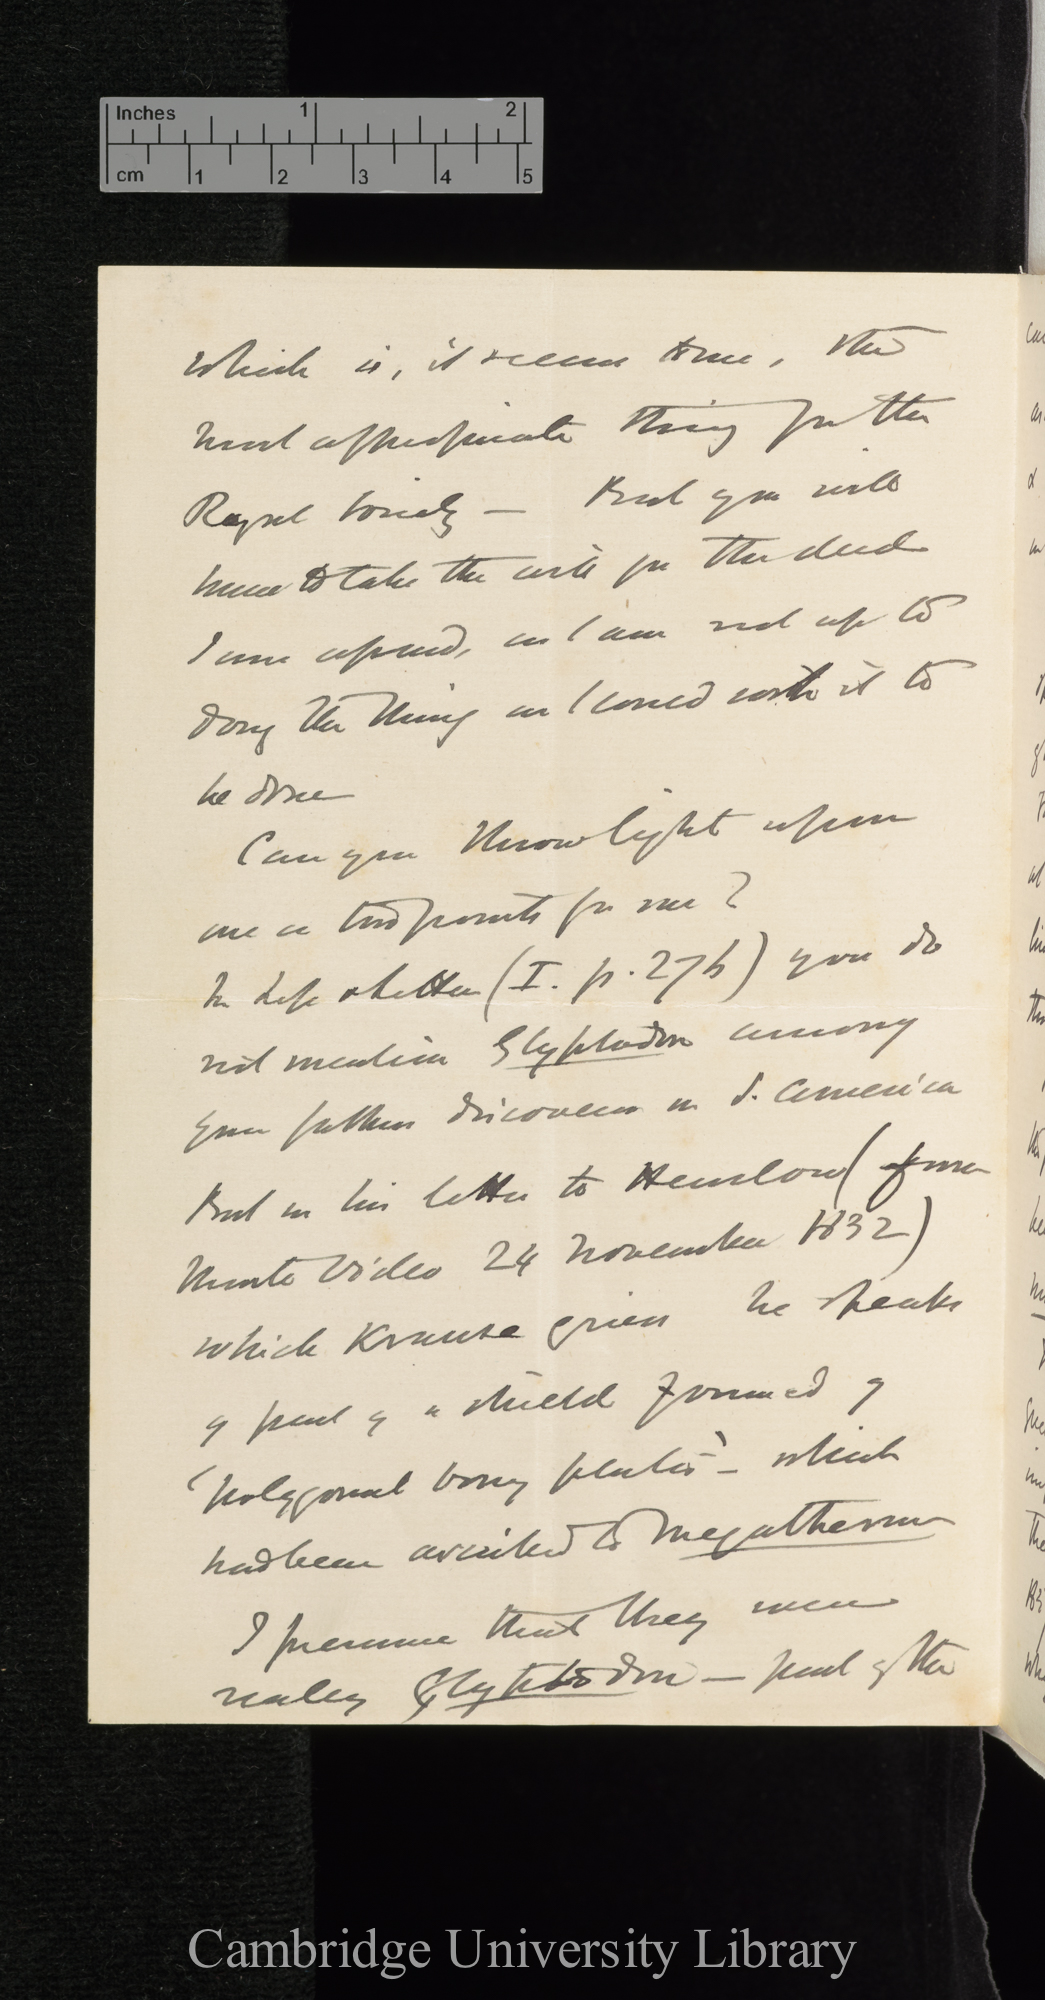 Inches 1 2
cm 1 2 3 4 5
which is, it seems to me, the
most appropriate thing for the
Royal Society — But you will
have to take the will for the deed
I am afraid, as I am not up to
doing the thing as I could wish it to
be done
Can you throw light upon
one or two points for me?
In Life & letters (I. p. 276) you do
not mention Glyptodon among
your father's discoveries in S. America
But in his letter to Henslow (from
Monte Video 24 November 1832)
which Krause gives he speaks
of part of a shield formed of
'polygonal bony plates' — which
had been ascribed to Megatherium
I presume that they were
really Glyptodon — part of the
Cambridge University Library